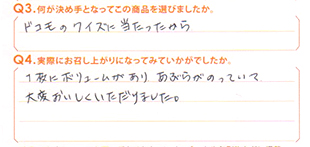 Q3.何が決め手となってこの商品を選びましたか。
ドコモのクイズに当たったから
Q4.実際にお召し上がりになってみていかがでしたか。
1枚にボリュームがあり あぶらがのっていて
大変おいしくいただけました。